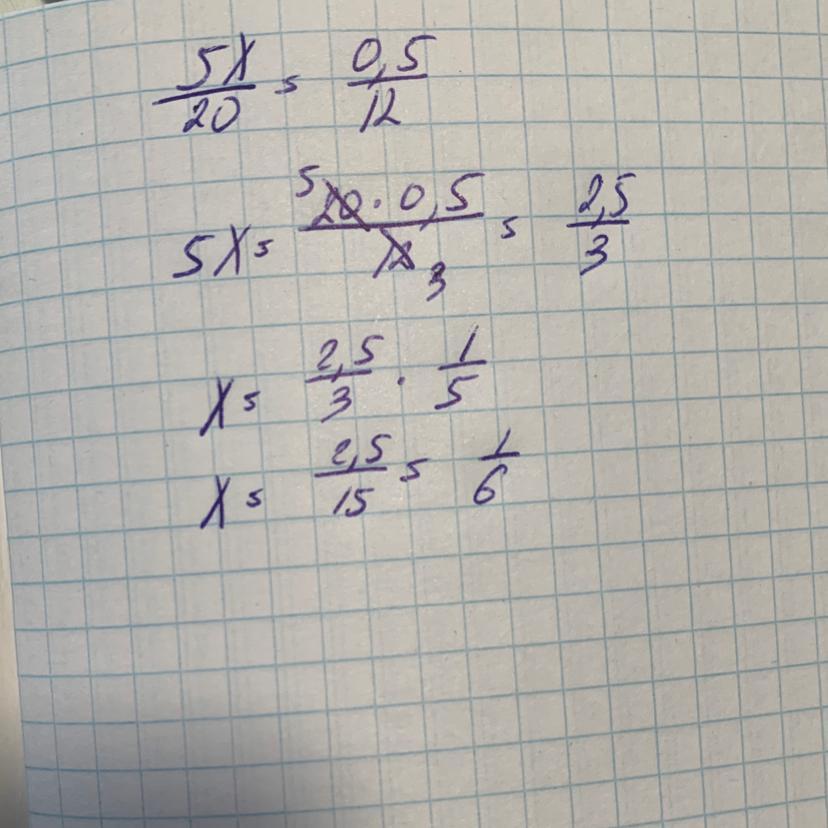 5x/20 = 0,5/12
5x = 5 20 · 0,5/12 3 = 2,5/3
x = 2,5/3 · 1/5
x = 2,5/15 = 1/6